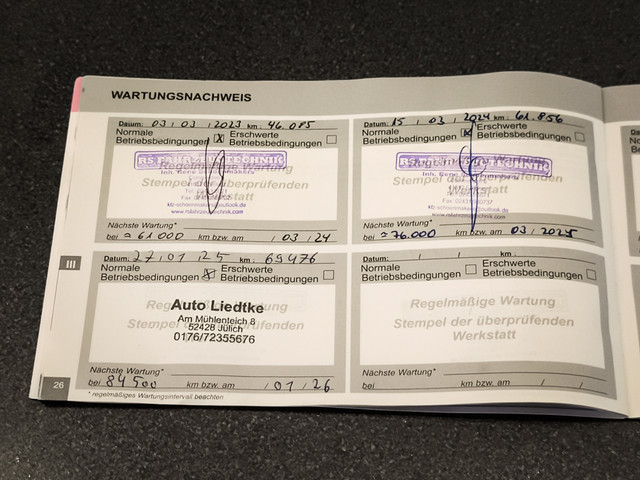 WARTUNGSNACHWEIS
Datum: 03 / 03 / 2023 km: 46.085
Normale Betriebsbedingungen X Erschwerte Betriebsbedingungen
RS FAHRZEUGTECHNIK
Regelmäßige Wartung
Stempel der überprüfenden
Werkstatt
www.rsfahrzeugtechnik.com
Nächste Wartung*
bei ≈ 61000 km bzw. am / 03 / 24
Datum: 15 / 03 / 2024 km: 61.856
Normale Betriebsbedingungen X Erschwerte Betriebsbedingungen
RS FAHRZEUGTECHNIK
Regelmäßige Wartung
Stempel der überprüfenden
Werkstatt
www.rsfahrzeugtechnik.com
Nächste Wartung*
bei ≈ 76.000 km bzw. am 03 / 2025
III
Datum: 27 / 01 / 25 km: 69476
Normale Betriebsbedingungen X Erschwerte Betriebsbedingungen
Regelmäßige Wartung
Stempel der überprüfenden
Werkstatt
Auto Liedtke
Am Mühlenteich 8
52428 Jülich
0176/72355676
Nächste Wartung*
bei 84500 km bzw. am / 01 / 26
Datum: / / km:
Normale Betriebsbedingungen Erschwerte Betriebsbedingungen
Regelmäßige Wartung
Stempel der überprüfenden
Werkstatt
Nächste Wartung*
bei km bzw. am / /
26
* regelmäßiges Wartungsintervall beachten